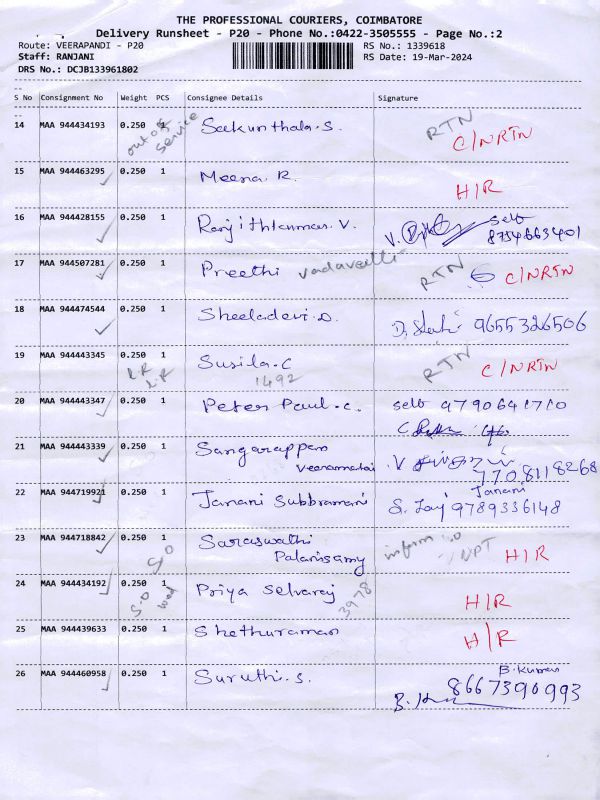 THE PROFESSIONAL COURIERS, COIMBATORE
Delivery Runsheet - P20 - Phone No.:0422-3505555 - Page No.:2
Route: VEERAPANDI - P20 RS No.: 1339618
Staff: RANJANI RS Date: 19-Mar-2024
DRS No.: DCJB133961802
S No Consignment No Weight PCS Consignee Details Signature
14 MAA 944434193 0.250 1 out of service Seekunthala.S. RTN C/NRTN
15 MAA 944463295 0.250 1 Meena R. H/R
16 MAA 944428155 0.250 1 Ranjithkumar.V. V. self
8754663401
17 MAA 944507281 0.250 1 Preethi Vadavalli RTN C/NRTN
18 MAA 944474544 0.250 1 Sheeladevi.D. 9655326506
19 MAA 944443345 0.250 1 Susila.C RTN C/NRTN
LR LR 1492
20 MAA 944443347 0.250 1 Peter Paul.C. self 9790641710
21 MAA 944443339 0.250 1 Sangarappan V
Veeramalai 7708118268
22 MAA 944719921 0.250 1 Janani Subbramani Janani
9789336148
23 MAA 944718842 0.250 1 Saraswathi inform H/R
S.O Palanisamy
24 MAA 944434192 0.250 1 Priya Selvaraj 3978 H/R
S.O
25 MAA 944439633 0.250 1 Shethuraman H/R
26 MAA 944460958 0.250 1 Suruthi.S. B.Kumar
8667390993